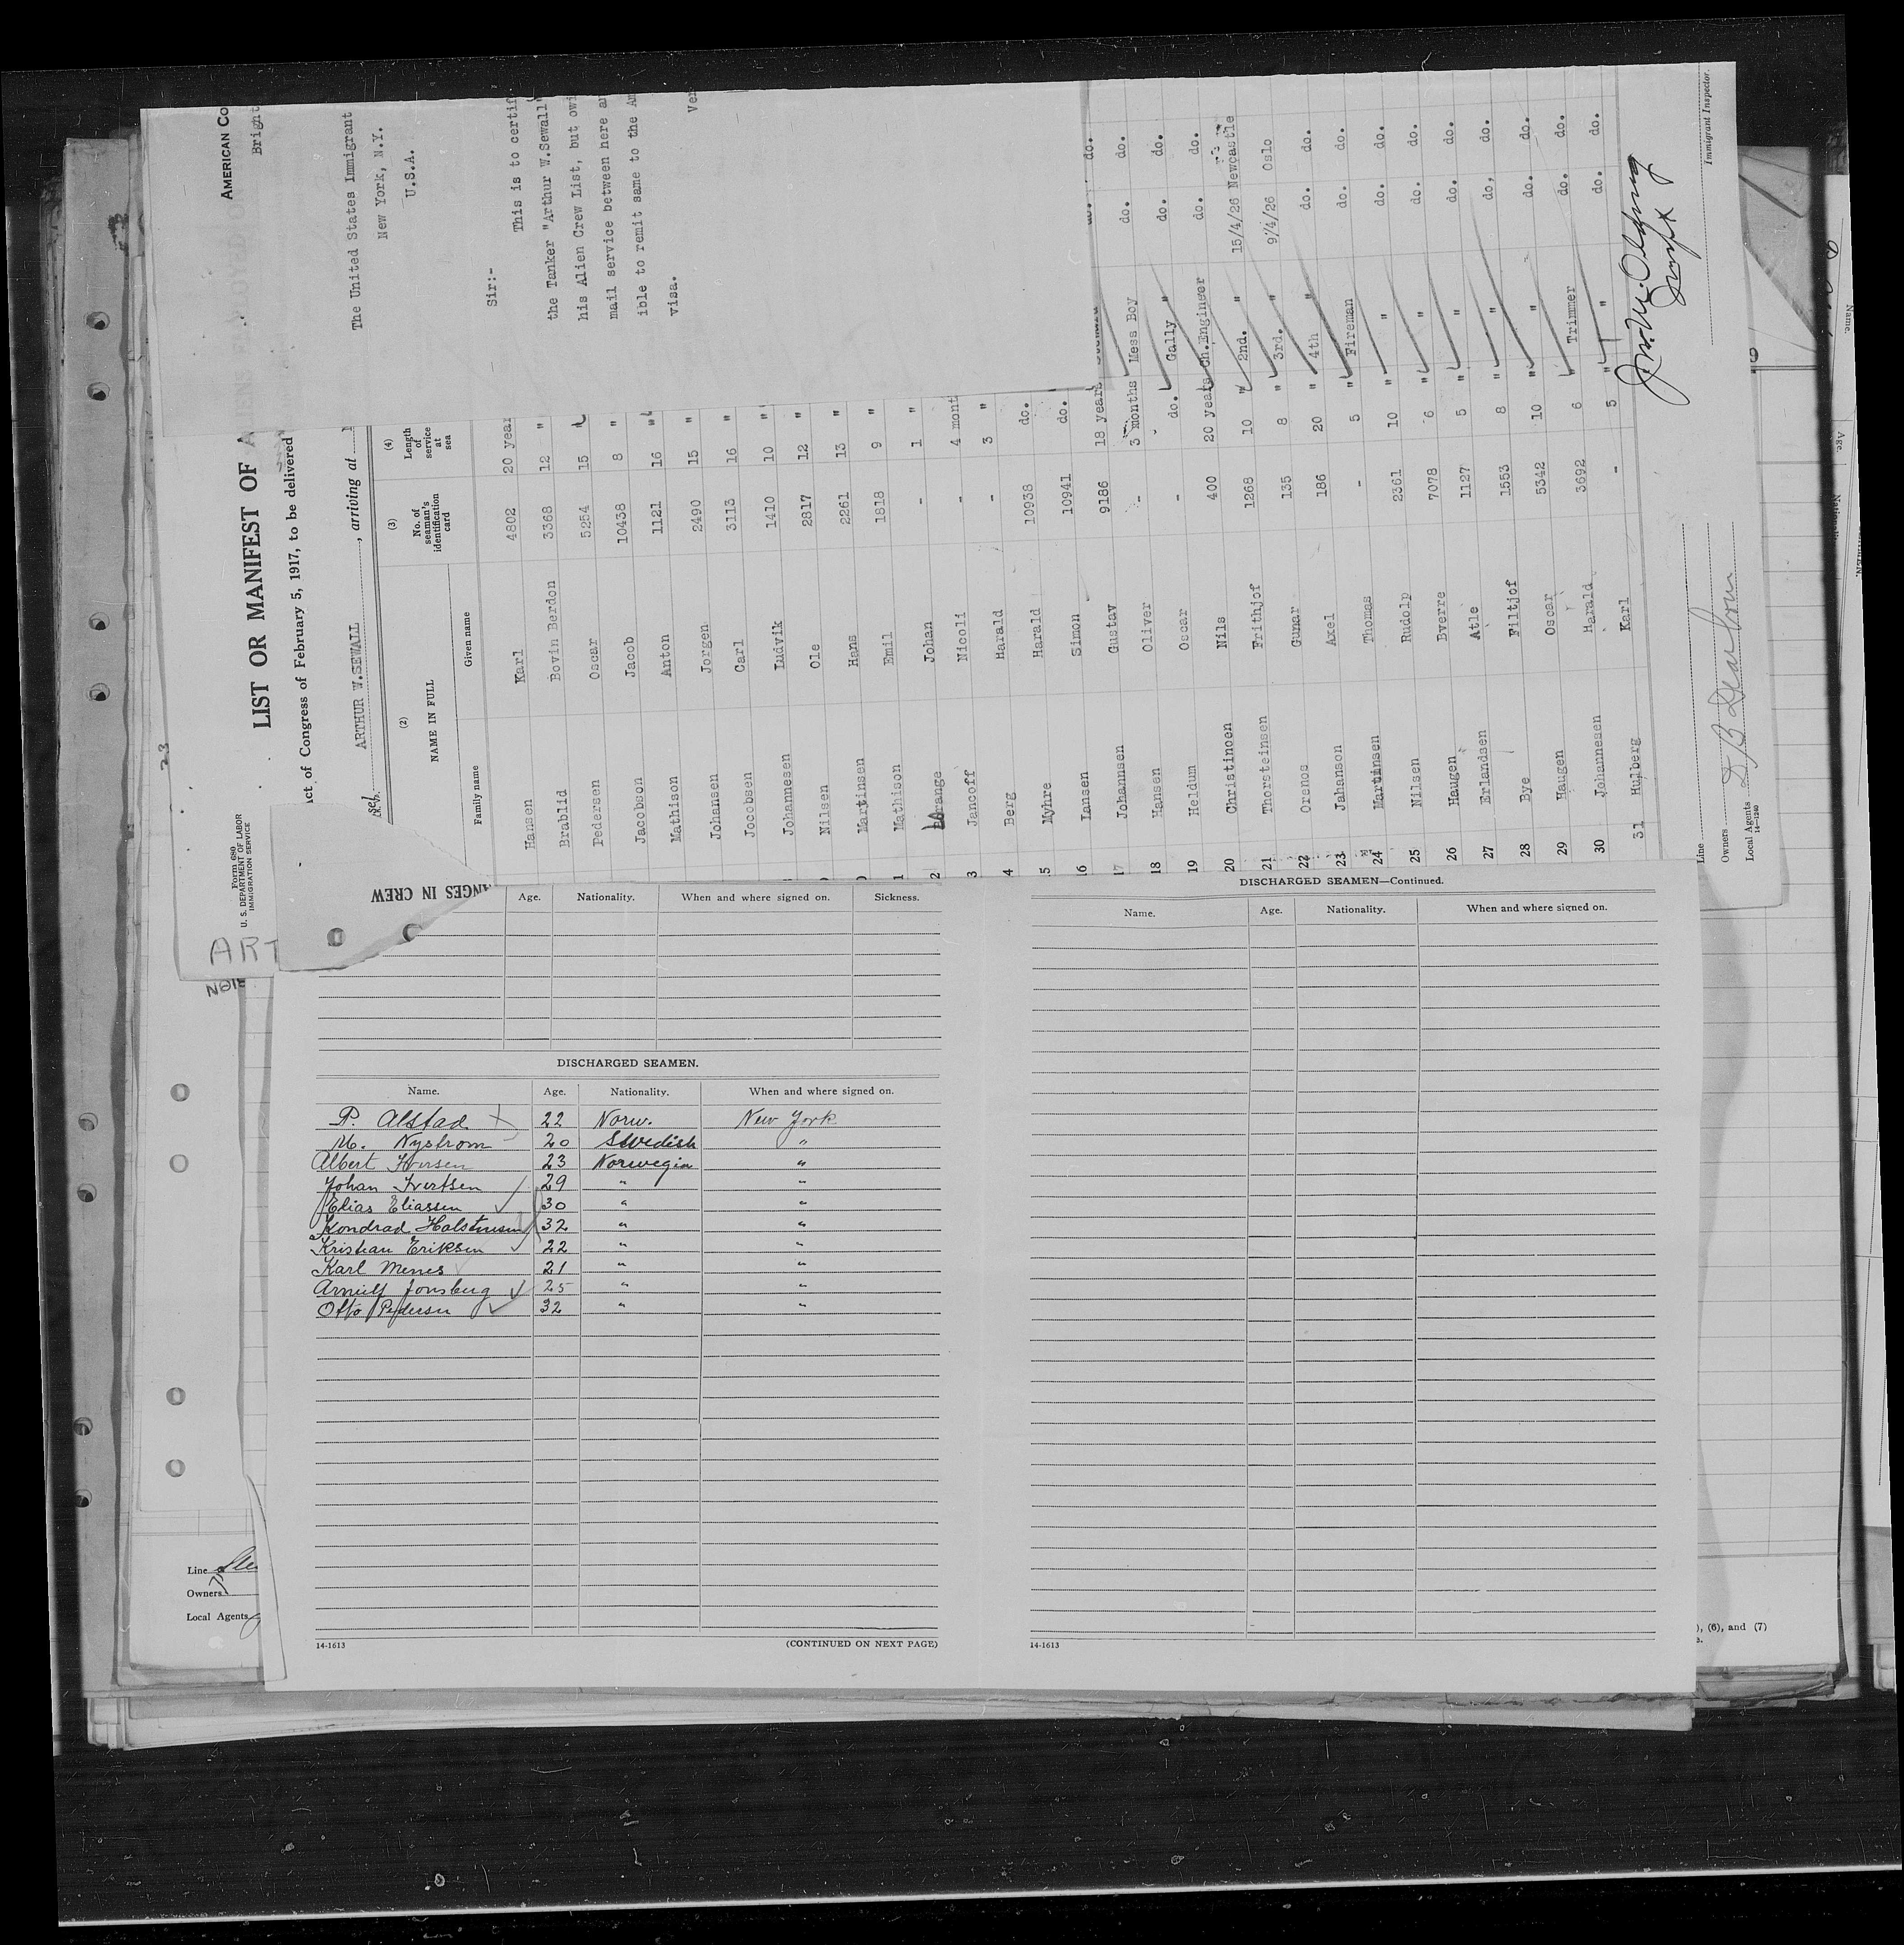 AMERICAN Co
Bright
The United States Immigrant
New York, N.Y.
U.S.A.
Sir:-
This is to certif
the Tanker "Arthur W.Sewall"
his Alien Crew List, but owi
mail service between here a
ible to remit same to the Am
visa.
Ver
Form 680
U. S. DEPARTMENT OF LABOR
IMMIGRATION SERVICE
LIST OR MANIFEST OF A
Act of Congress of February 5, 1917, to be delivered
sel ARTHUR W.SEWALL, arriving at
(2) (3) (4)
NAME IN FULL No. of seaman's identification card Length of service at sea
Family name Given name
Hansen Karl 4802 20 year
Brablid Bovin Berdon 3368 12 "
Pedersen Oscar 5254 15 "
Jacobson Jacob 10438 8 "
Mathison Anton 1121 16 "
Johansen Jorgen 2490 15 "
Jocobsen Carl 3113 16 "
Johannesen Ludvik 1410 10 "
Nilsen Ole 2817 12 "
Martinsen Hans 2261 13 "
1 Mathison Emil 1818 9 "
2 Johan - 1 "
3 Jancoff Nicoli - 4 mont
4 Berg Harald - 3 "
5 Myhre Harald 10938 do.
16 Lansen Simon 10941 do.
17 Johansen Gustav 9186 18 years do.
18 Hansen Oliver - 3 months Mess Boy do. do.
19 Heldum Oscar - do. Gally " do. do.
20 Christinoen Nils 400 20 years Ch.Engineer do. do.
21 Thorsteinsen Frithjof 1268 10 " 2nd. " 15/4/26 Newcastle
22 Orenos Gunar 135 8 " 3rd. " 9/4/26 Oslo
23 Jahanson Axel 186 20 " 4th " do. do.
24 Martinsen Thomas - 5 " Fireman do. do.
25 Nilsen Rudolp 2361 10 " " do. do.
26 Haugen Bverre 7078 6 " " do. do.
27 Erlandsen Atle 1127 5 " " do. do.
28 Bye Filtjof 1553 8 " " do, do.
29 Haugen Oscar 5342 10 " " do. do.
30 Johannesen Harald 3692 6 " Trimmer do. do.
31 Hulberg Karl - 5 " " do. do.
Immigrant Inspector.
Line
Owners
Local Agents
14-1240
ART
ANGES IN CREW
Age. Nationality. When and where signed on. Sickness.
DISCHARGED SEAMEN.
Name. Age. Nationality. When and where signed on.
P. Alstad 22 Norw. New York
M. Nystrom 20 Swedish "
Albert Iversen 23 Norwegia "
Johan Ivertsen 29 " "
Elias Eliassen 30 " "
Kondrad 32 " "
Kristian Eriksen 22 " "
Karl Menes 21 " "
Arnulf Jonsberg 25 " "
Otto Pedersen 32 " "
14-1613 (CONTINUED ON NEXT PAGE)
DISCHARGED SEAMEN—Continued.
Name. Age. Nationality. When and where signed on.
14-1613
Line
Owners
Local Agents
), (6), and (7)
Name.
Age.